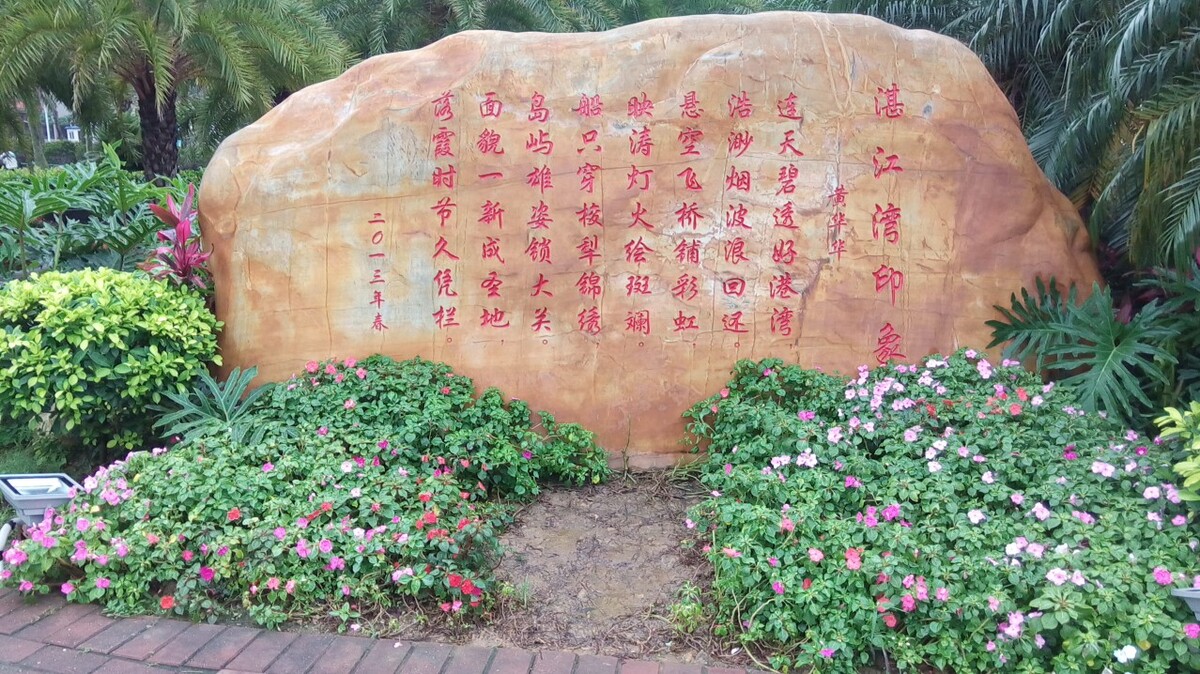 湛江湾印象
黄华华
连天碧透好港湾
浩渺烟波浪回还。
悬空飞桥铺彩虹
映涛灯火绘斑斓。
船只穿梭犁锦绣
岛屿雄姿锁大关。
面貌一新成圣地，
落霞时节久凭栏。
二〇一三年春